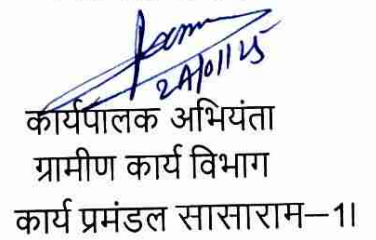 कार्यपालक अभियंता
ग्रामीण कार्य विभाग
कार्य प्रमंडल सासाराम–1।